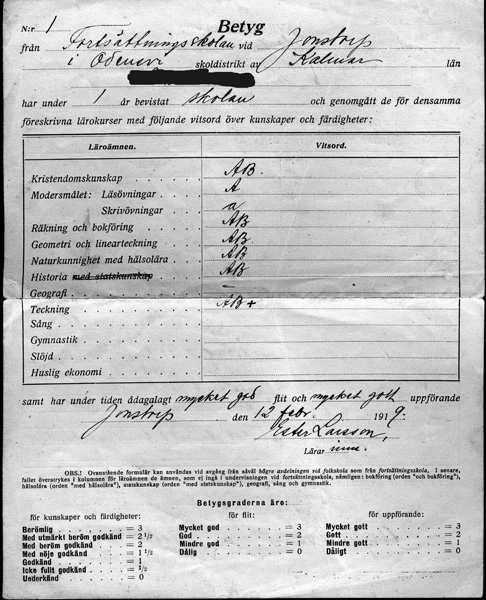 N:r 1 Betyg
från Fortsättningsskolan vid Jonstorp
i Ödenevi skoldistrikt av Kalmar län
har under 1 år bevistat skolan och genomgått de för densamma
föreskrivna lärokurser med följande vitsord över kunskaper och färdigheter:
Läroämnen. Vitsord.
Kristendomskunskap AB.
Modersmålet: Läsövningar A
Skrivövningar a
Räkning och bokföring AB
Geometri och linearteckning AB
Naturkunnighet med hälsolära AB
Historia med statskunskap AB
Geografi –
Teckning AB+
Sång
Gymnastik
Slöjd
Huslig ekonomi
samt har under tiden ådagalagt mycket god flit och mycket gott uppförande
Jonstorp den 12 febr. 1919.
Ester Larsson,
Lärar inna.
OBS.! Ovanstående formulär kan användas vid avgång från såväl högre avdelningen vid folkskola som från fortsättningsskola, I senare,
fallet överstrykes i kolumnen för läroämnen de ämn, som ej ingå i undervisningen vid fortsättningsskola, nämligen: bokföring (orden "och bokföring"),
hälsolära (orden "med hälsolära"), statskunskap (orden "med statskunskap"), geografi, sång och gymnastik.
Betygsgraderna äro:
för kunskaper och färdigheter: för flit: för uppförande:
Berömlig = 3 Mycket god = 3 Mycket gott = 3
Med utmärkt beröm godkänd = 2 1/2 God = 2 Gott = 2
Med beröm godkänd = 2 Mindre god = 1 Mindre gott = 1
Med nöje godkänd = 1 1/2 Dålig = 0 Dåligt = 0
Godkänd = 1
Icke fullt godkänd = 1/2
Underkänd = 0